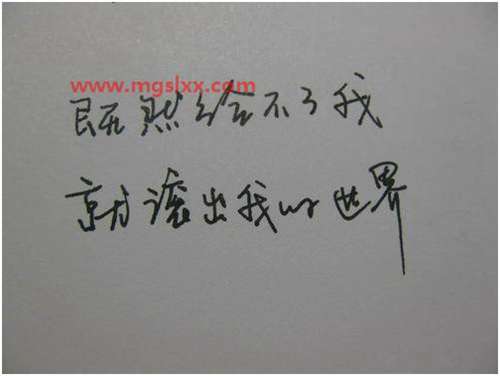 www.mgslxx.com
既然给不了我
就滚出我的世界